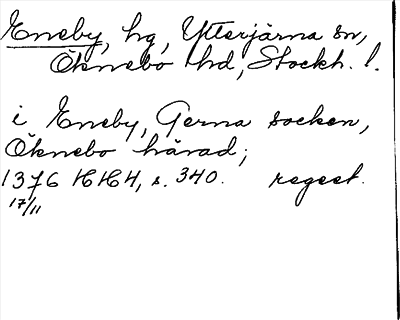 Eneby, hg, Ytterjärna sn,
Öknebo hd, Stockh. l.
i Eneby, Gerna socken,
Öknebo härad;
1376 HH4, s. 340. regest.
17/11